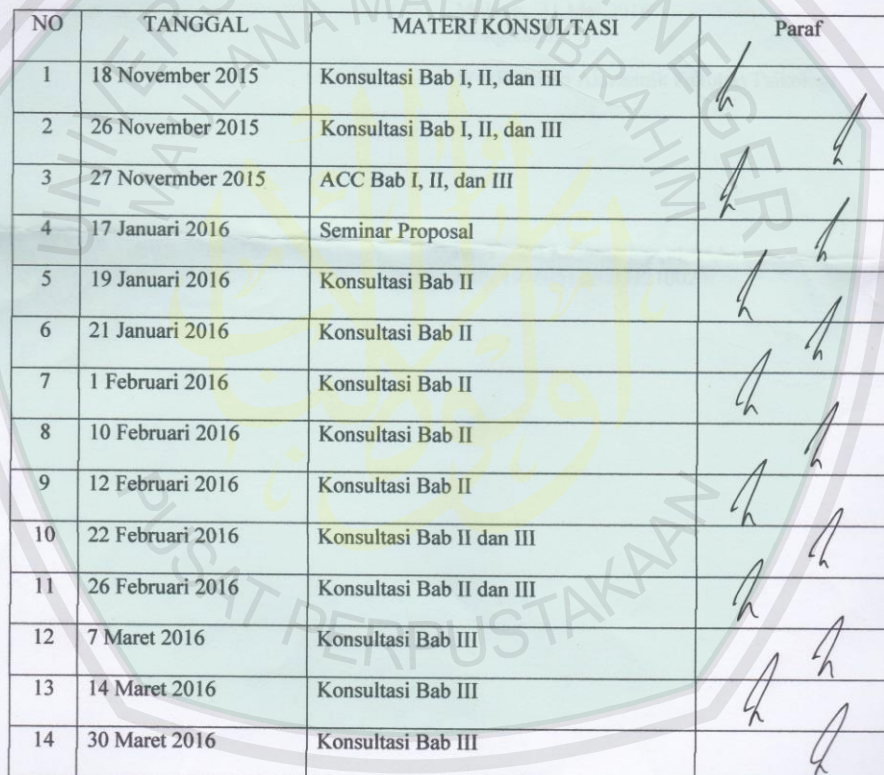 NO TANGGAL MATERI KONSULTASI Paraf
1 18 November 2015 Konsultasi Bab I, II, dan III
2 26 November 2015 Konsultasi Bab I, II, dan III
3 27 Novermber 2015 ACC Bab I, II, dan III
4 17 Januari 2016 Seminar Proposal
5 19 Januari 2016 Konsultasi Bab II
6 21 Januari 2016 Konsultasi Bab II
7 1 Februari 2016 Konsultasi Bab II
8 10 Februari 2016 Konsultasi Bab II
9 12 Februari 2016 Konsultasi Bab II
10 22 Februari 2016 Konsultasi Bab II dan III
11 26 Februari 2016 Konsultasi Bab II dan III
12 7 Maret 2016 Konsultasi Bab III
13 14 Maret 2016 Konsultasi Bab III
14 30 Maret 2016 Konsultasi Bab III
MAULANA MALIK IBRAHIM
PUSAT PERPUSTAKAAN